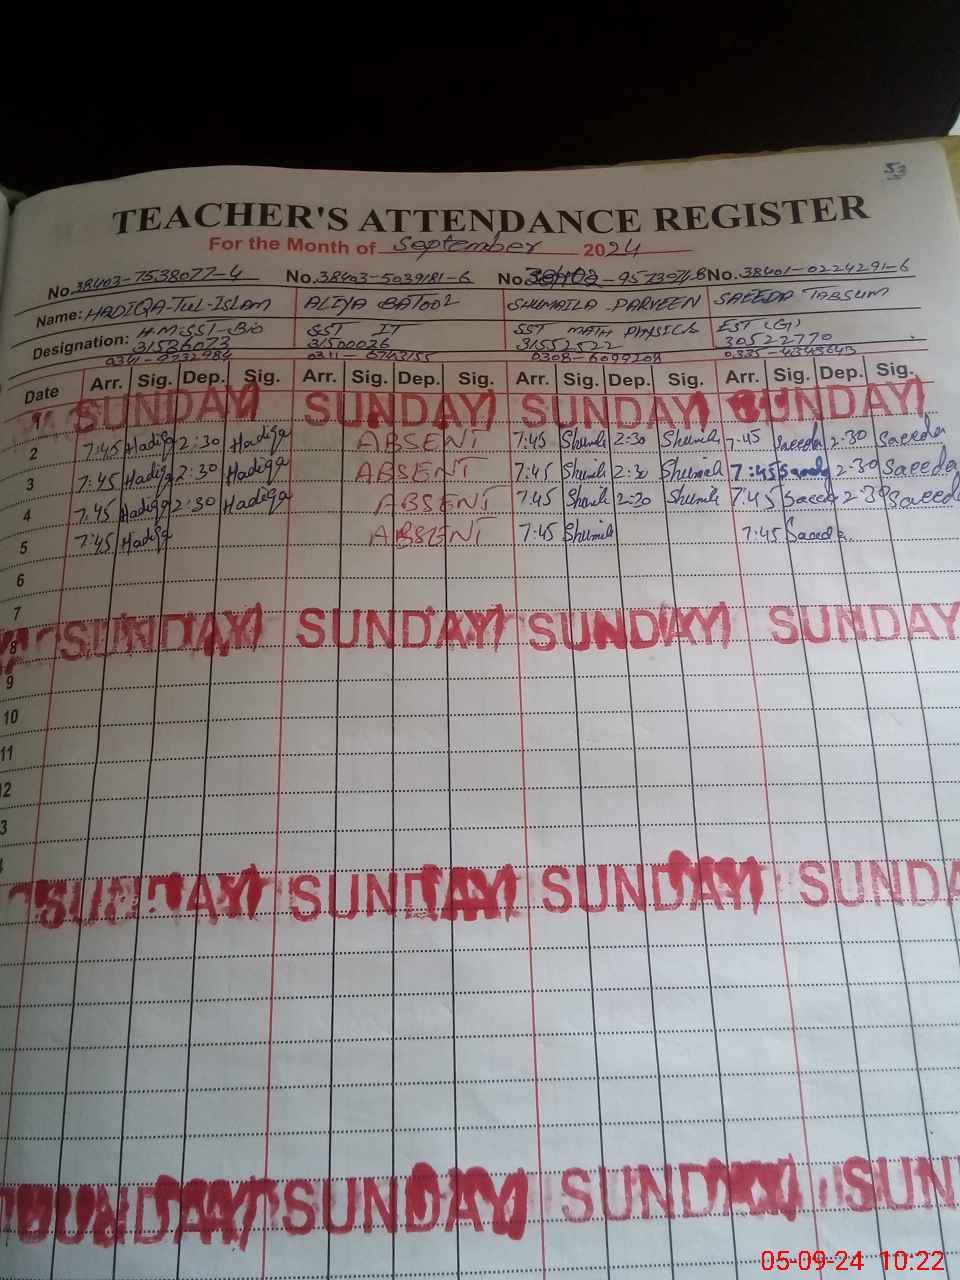 53
TEACHER'S ATTENDANCE REGISTER
For the Month of September 2024
No. 38403-7538077-4 No. 38403-5039181-6 No. No. 38401-0224291-6
Name: HADIQA-Tul-Islam ALIYA BATOOL SHUMAILA PARVEEN SAEEDA TABSUM
Designation: H.M/SST-Bio SST IT SST MATH PHYSICS EST (G)
31526073 31500026 31552522 30522770
Date Arr. Sig. Dep. Sig. Arr. Sig. Dep. Sig. Arr. Sig. Dep. Sig. Arr. Sig. Dep. Sig.
1 SUNDAY SUNDAY SUNDAY SUNDAY
2 7:45 Hadiqa 2:30 Hadiqa ABSENT 7:45 Shumila 2:30 Shumila 7:45 Saeeda 2:30 Saeeda
3 7:45 Hadiqa 2:30 Hadiqa ABSENT 7:45 Shumila 2:30 Shumila 7:45 Saeeda 2:30 Saeeda
4 7:45 Hadiqa 2:30 Hadiqa ABSENT 7:45 2:30 Shumila 7:45 Saeeda 2:30 Saeeda
5 7:45 Hadiqa ABSENT 7:45 Shumila 7:45 Saeeda
6
7
8 SUNDAY SUNDAY SUNDAY SUNDAY
9
10
11
12
3
SUNDAY SUNDAY SUNDAY SUNDA
SUNDAY SUNDAY SUNDAY SUN
05-09-24 10:22